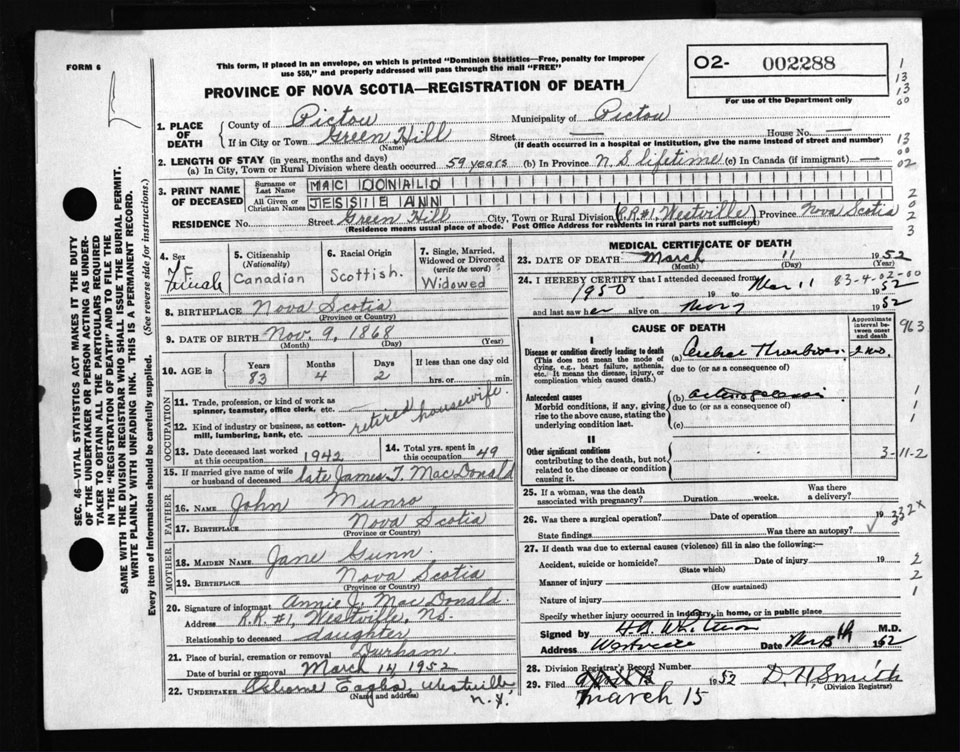 FORM 6
This form, if placed in an envelope, on which is printed "Dominion Statistics—Free, penalty for improper
use $50," and properly addressed will pass through the mail "FREE"
O2- 002288
For use of the Department only
PROVINCE OF NOVA SCOTIA—REGISTRATION OF DEATH
1. PLACE OF DEATH
County of Pictou Municipality of Pictou
If in City or Town Green Hill Street — House No. —
(Name) (If death occurred in a hospital or institution, give the name instead of street and number)
2. LENGTH OF STAY (in years, months and days)
(a) In City, Town or Rural Division where death occurred 59 years (b) In Province N.S. lifetime (c) In Canada (if immigrant) —
3. PRINT NAME OF DECEASED
Surname or Last Name MAC DONALD
All Given or Christian Names JESSIE ANN
RESIDENCE No. Street Green Hill City, Town or Rural Division (R.R.#1, Westville) Province Nova Scotia
(Residence means usual place of abode. Post Office Address for residents in rural parts not sufficient)
4. Sex F Female
5. Citizenship (Nationality) Canadian
6. Racial Origin Scottish.
7. Single, Married, Widowed or Divorced (write the word) Widowed
8. BIRTHPLACE Nova Scotia
(Province or Country)
9. DATE OF BIRTH Nov. 9, 1868
(Month) (Day) (Year)
10. AGE in Years 83 Months 4 Days 2 If less than one day old hrs. or min.
OCCUPATION
11. Trade, profession, or kind of work as spinner, teamster, office clerk, etc.
12. Kind of industry or business, as cotton-mill, lumbering, bank, etc.
retired housewife.
13. Date deceased last worked at this occupation 1942
14. Total yrs. spent in this occupation 49
15. If married give name of wife or husband of deceased late James T. MacDonald
FATHER
16. NAME John Munro
17. BIRTHPLACE Nova Scotia
(Province or Country)
MOTHER
18. MAIDEN NAME Jane Gunn.
19. BIRTHPLACE Nova Scotia
(Province or Country)
20. Signature of informant Annie J. MacDonald.
Address R.R. #1, Westville, N.S.
Relationship to deceased daughter
21. Place of burial, cremation or removal Durham.
Date of burial or removal March 14 1952
22. UNDERTAKER Eagles, Westville,
(Name and address) N.S.
MEDICAL CERTIFICATE OF DEATH
23. DATE OF DEATH March 11 1952
(Month) (Day) (Year)
24. I HEREBY CERTIFY that I attended deceased from
1950 19 to Mar 11 1952
83-4-02-00
and last saw her alive on 1952
CAUSE OF DEATH
Approximate interval between onset and death
I
Disease or condition directly leading to death
(This does not mean the mode of dying, e.g., heart failure, asthenia, etc. It means the disease, injury, or complication which caused death.)
(a) Thrombosis
due to (or as a consequence of)
Antecedent causes
Morbid conditions, if any, giving rise to the above cause, stating the underlying condition last
(b)
due to (or as a consequence of)
(c)
II
Other significant conditions
contributing to the death, but not related to the disease or condition causing it.
25. If a woman, was the death associated with pregnancy? Duration weeks. Was there a delivery?
26. Was there a surgical operation? Date of operation 19
State findings Was there an autopsy?
27. If death was due to external causes (violence) fill in also the following:—
Accident, suicide or homicide? Date of injury 19
(State which)
Manner of injury
(How sustained)
Nature of injury
Specify whether injury occurred in industry, in home, or in public place
Signed by M.D.
Address Westville Date 1952
28. Division Registrar's Record Number
29. Filed March 15 1952 D. H. Smith
(Division Registrar)
1
13
13
00
13
00
02
2
0
2
3
963
1
1
1
3-11-2
332X
2
2
1
SEC. 46—VITAL STATISTICS ACT MAKES IT THE DUTY
OF THE UNDERTAKER OR PERSON ACTING AS UNDER-
TAKER TO OBTAIN ALL THE PARTICULARS REQUIRED
IN THE "REGISTRATION OF DEATH" AND TO FILE THE
SAME WITH THE DIVISION REGISTRAR WHO SHALL ISSUE THE BURIAL PERMIT.
WRITE PLAINLY WITH UNFADING INK. THIS IS A PERMANENT RECORD.
Every item of information should be carefully supplied. (See reverse side for instructions.)